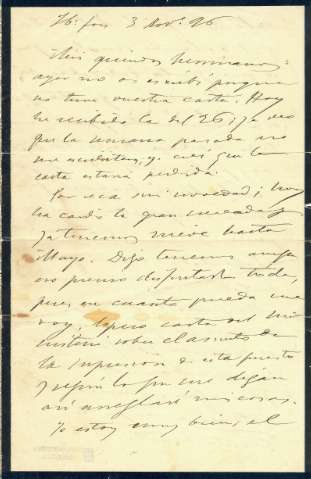 3 Nov. 96
Mis queridos hermanos:
ayer no os escribí porque
no tuve vuestra carta. Hoy
he recibido la del 26 y ya veo
que la semana pasada no
me escribisteis, yo creí que la
carta estaría perdida.
Por aca sin novedad; hoy
ha caido la gran nevada y
ya tenemos nieve hasta
Mayo. Digo tenemos aunque
no pienso disfrutarla toda,
pues en cuanto pueda me
voy. Espero carta del
sobre el asunto de
la supresion de este puesto
y según lo que me digan
así arreglaré mis cosas.
Yo estoy muy bien, el